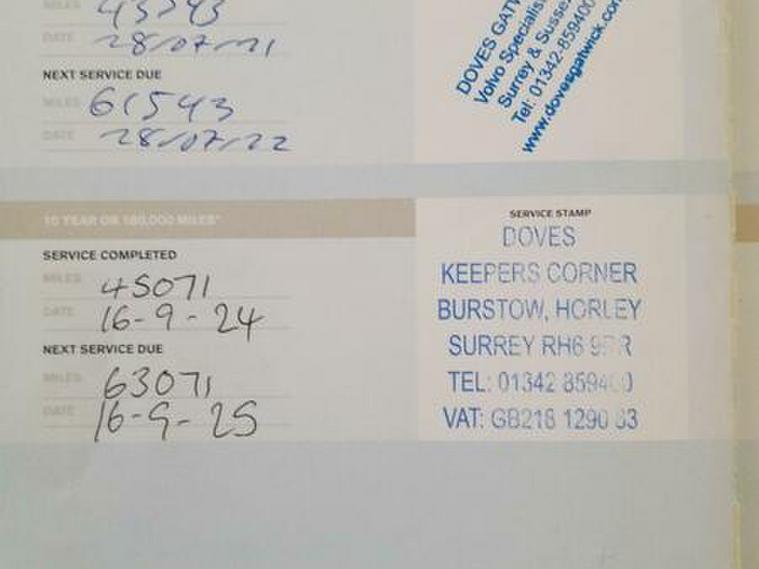 MILES 43543
DATE 28/07/21
NEXT SERVICE DUE
MILES 61543
DATE 28/07/22
DOVES
Volvo Specialis
Surrey & Susse
Tel: 01342-859400
www.dovesgatwick.co
10 YEAR OR 180,000 MILES*
SERVICE COMPLETED
MILES 45071
DATE 16-9-24
NEXT SERVICE DUE
MILES 63071
DATE 16-9-25
SERVICE STAMP
DOVES
KEEPERS CORNER
BURSTOW, HORLEY
SURREY RH6
TEL: 01342
VAT: GB218 1290